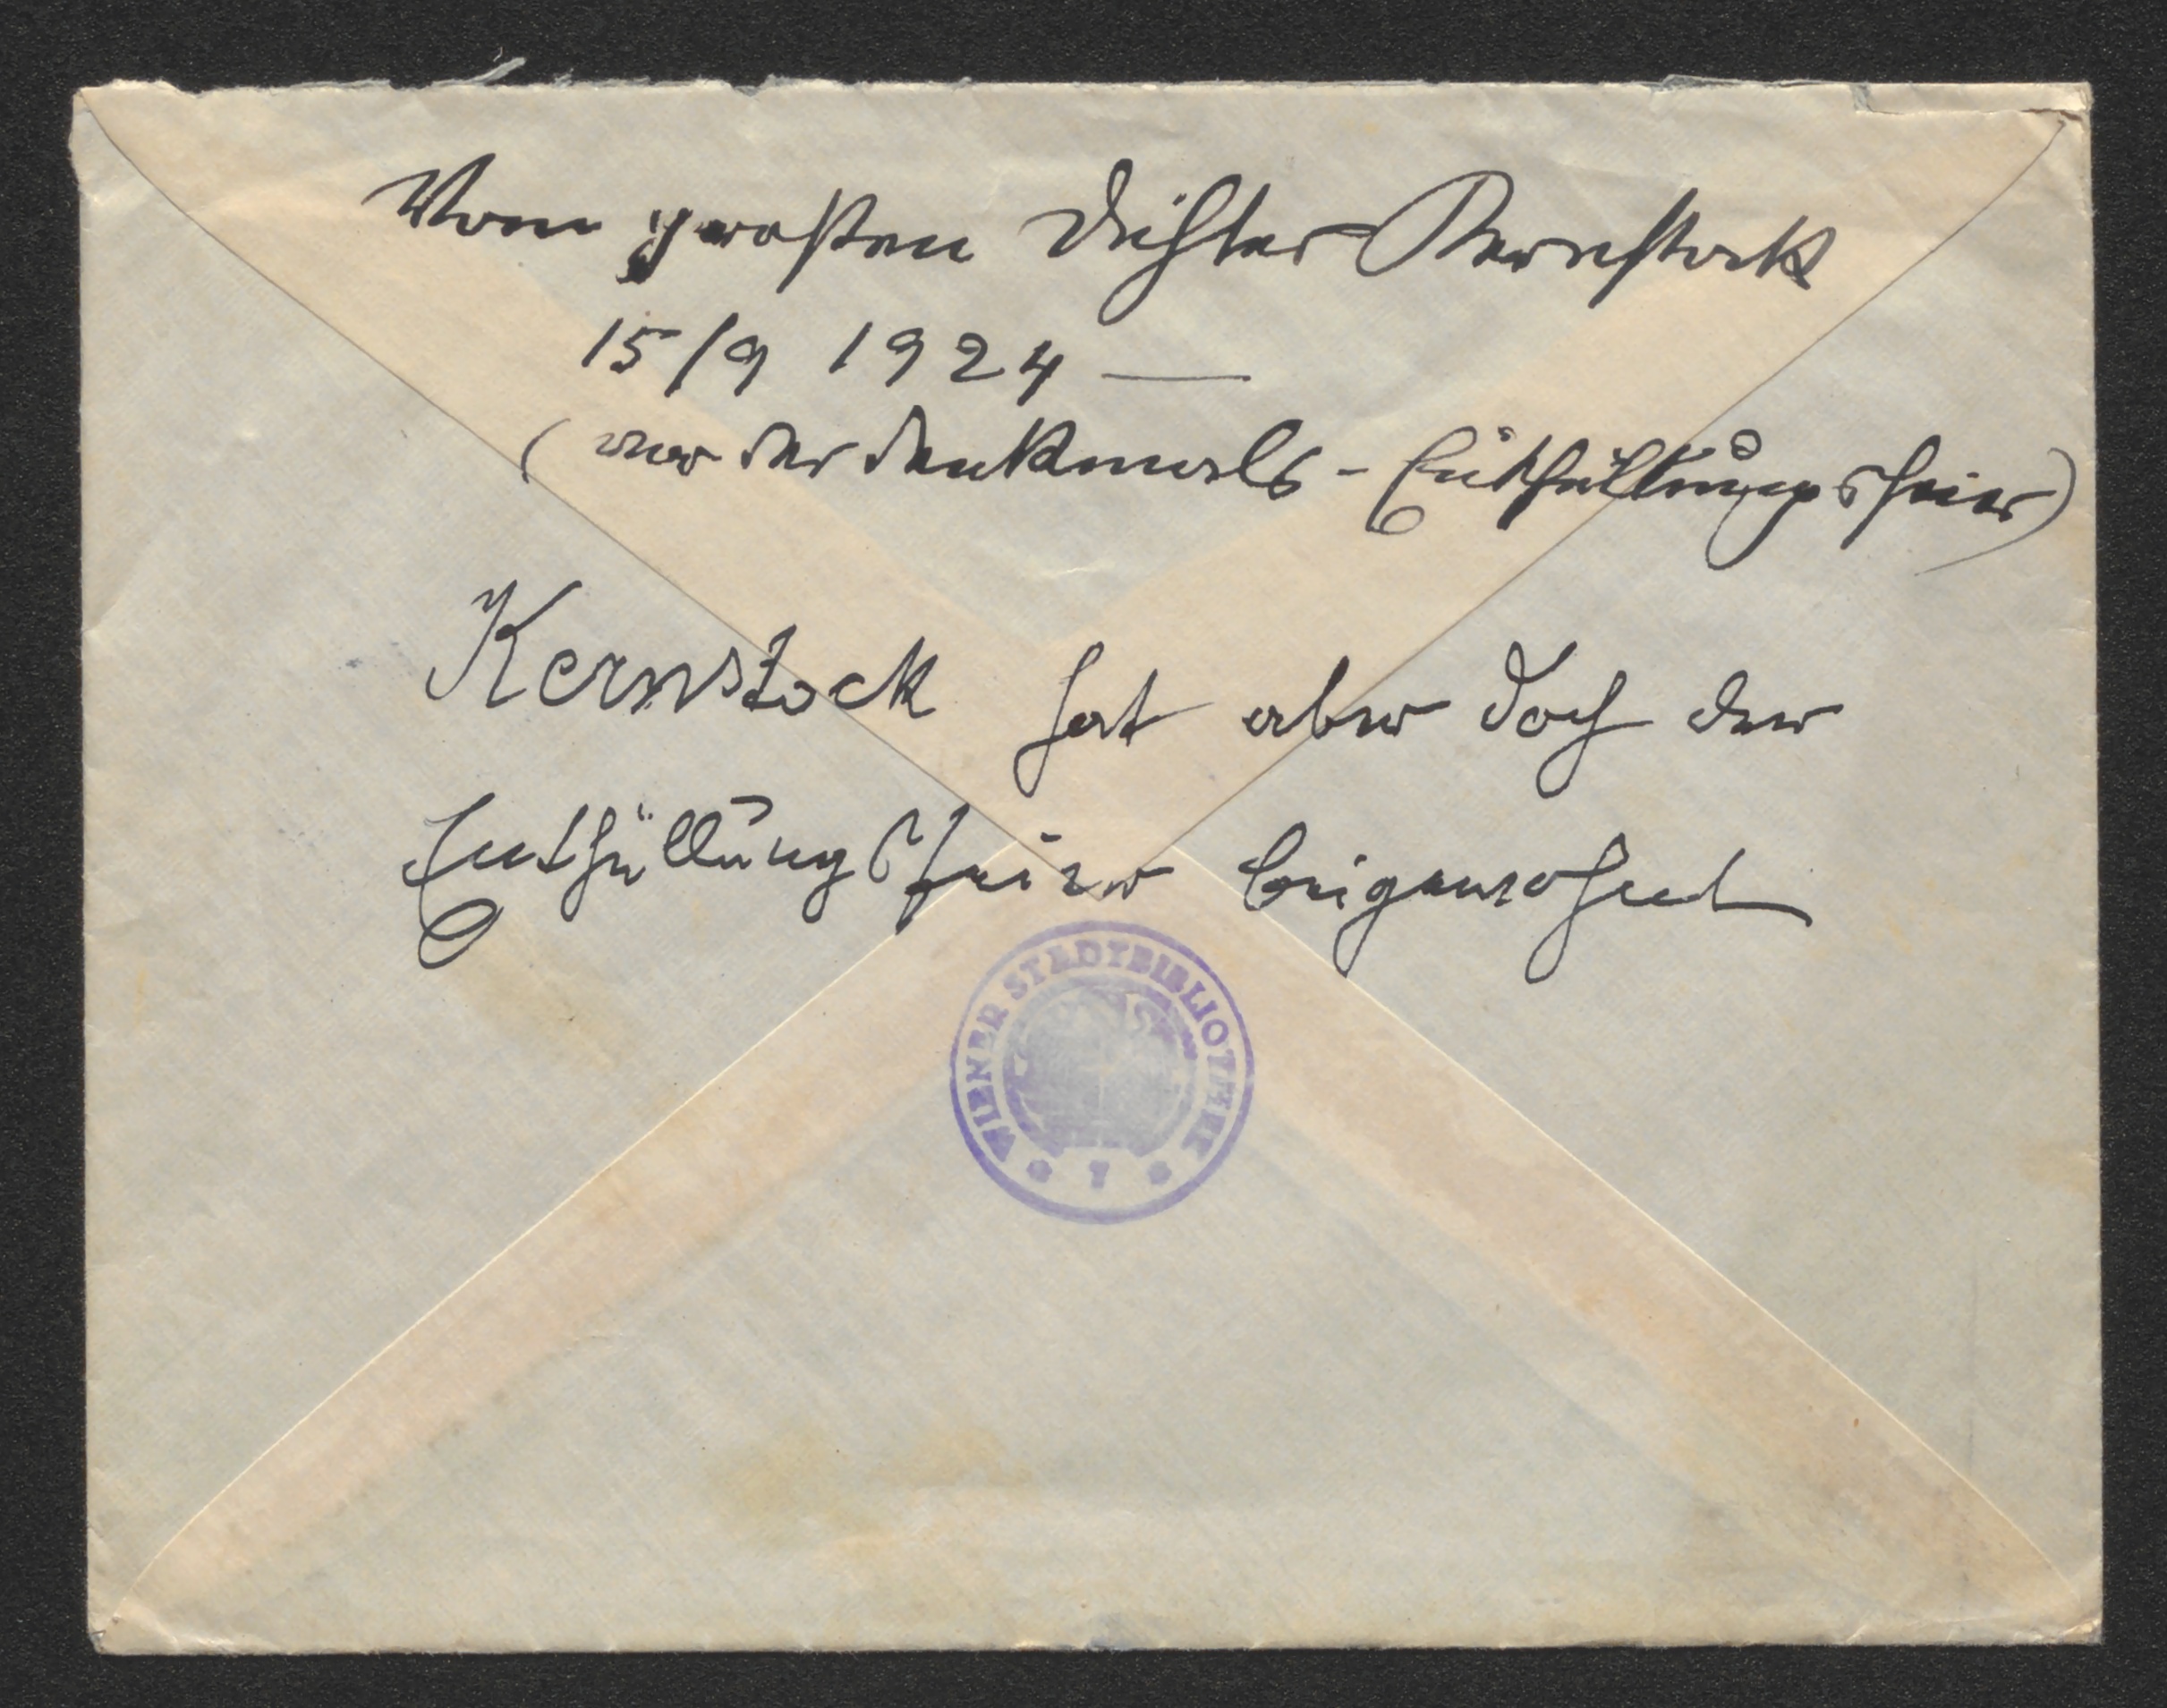 Vom großen Dichter Kernstock
15/9 1924 —
(vor der Denkmals-Enthüllungsfeier)
Kernstock hat aber doch der
Enthüllungsfeier beigewohnt
WIENER STADTBIBLIOTHEK
* 7 *